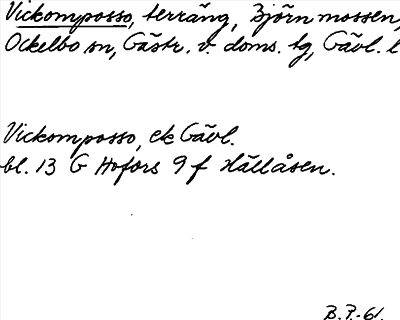 Vickomposso, terräng, Björnmossen,
Ockelbo sn, Gästr. v. doms. tg, Gävl. l
Vickomposso, ek Gävl.
bl. 13 G Hofors 9 f Hällåsen.
B.P.-61.